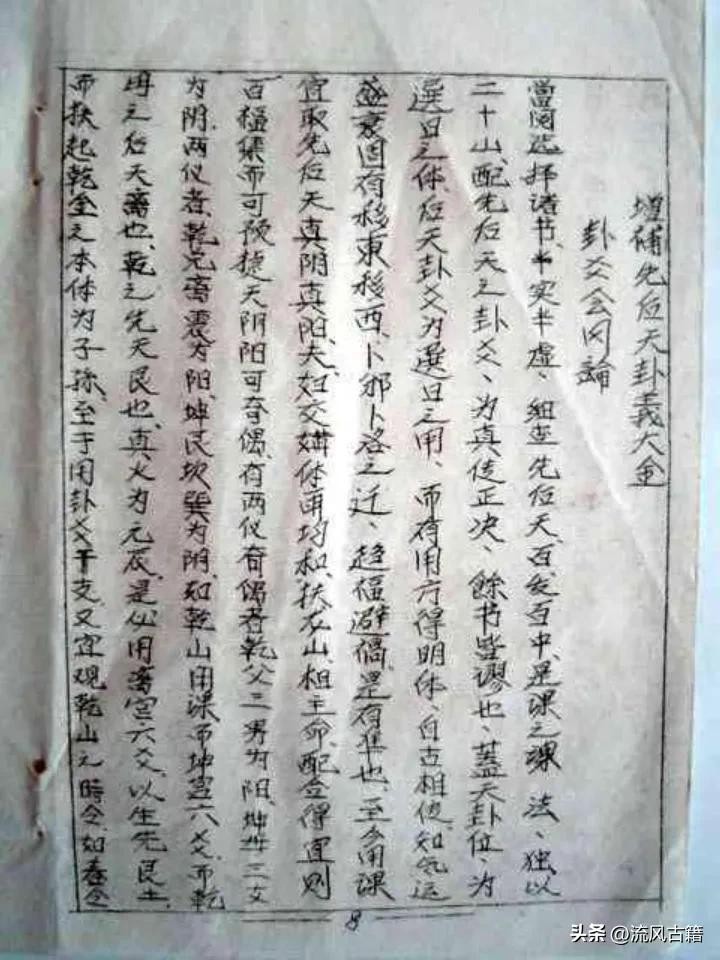 增補先后天卦義大全
卦爻会同論
當阅选择诸书、半实半虚、细查先后天、百发百中、是课之课法、独以
二十山、配先后天之卦爻、为真传正决、餘书皆谬也、蓋天卦位、为
選日之体、后天卦爻为選日之用、而有用方得明体、自古相传、知气运
盛衰固有移東移西、卜邪卜洛之迁、趋福避偶、是有準也、至于用课
宜取先后天真阴真阳、夫妇交媾体用均和、扶龙山、相主命、配合得宜则
百福集而可预捷天阴阳可奇偶、有两仪奇偶者乾父三男为阳、坤母三女
为阴、两仪者、乾兑离震为阳、坤艮坎巽为阴、如乾山用课而坤宫六爻、而乾
坤之后天离也、乾之先天艮也、真火为元辰、是必用离宫六爻、以生先艮土
而扶起乾金之本体为子孫、至于用卦爻干支、又宜观乾山之時令、如春令
8
头条 @流风古籍